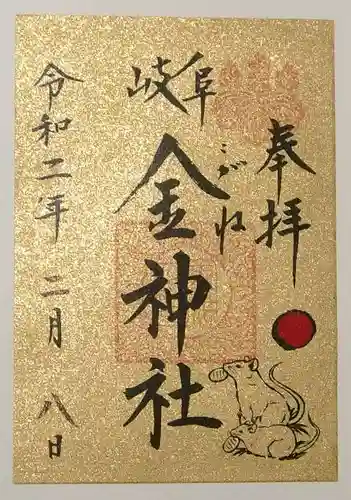 奉拝
岐阜
こがね
金神社
令和二年 二月 八日